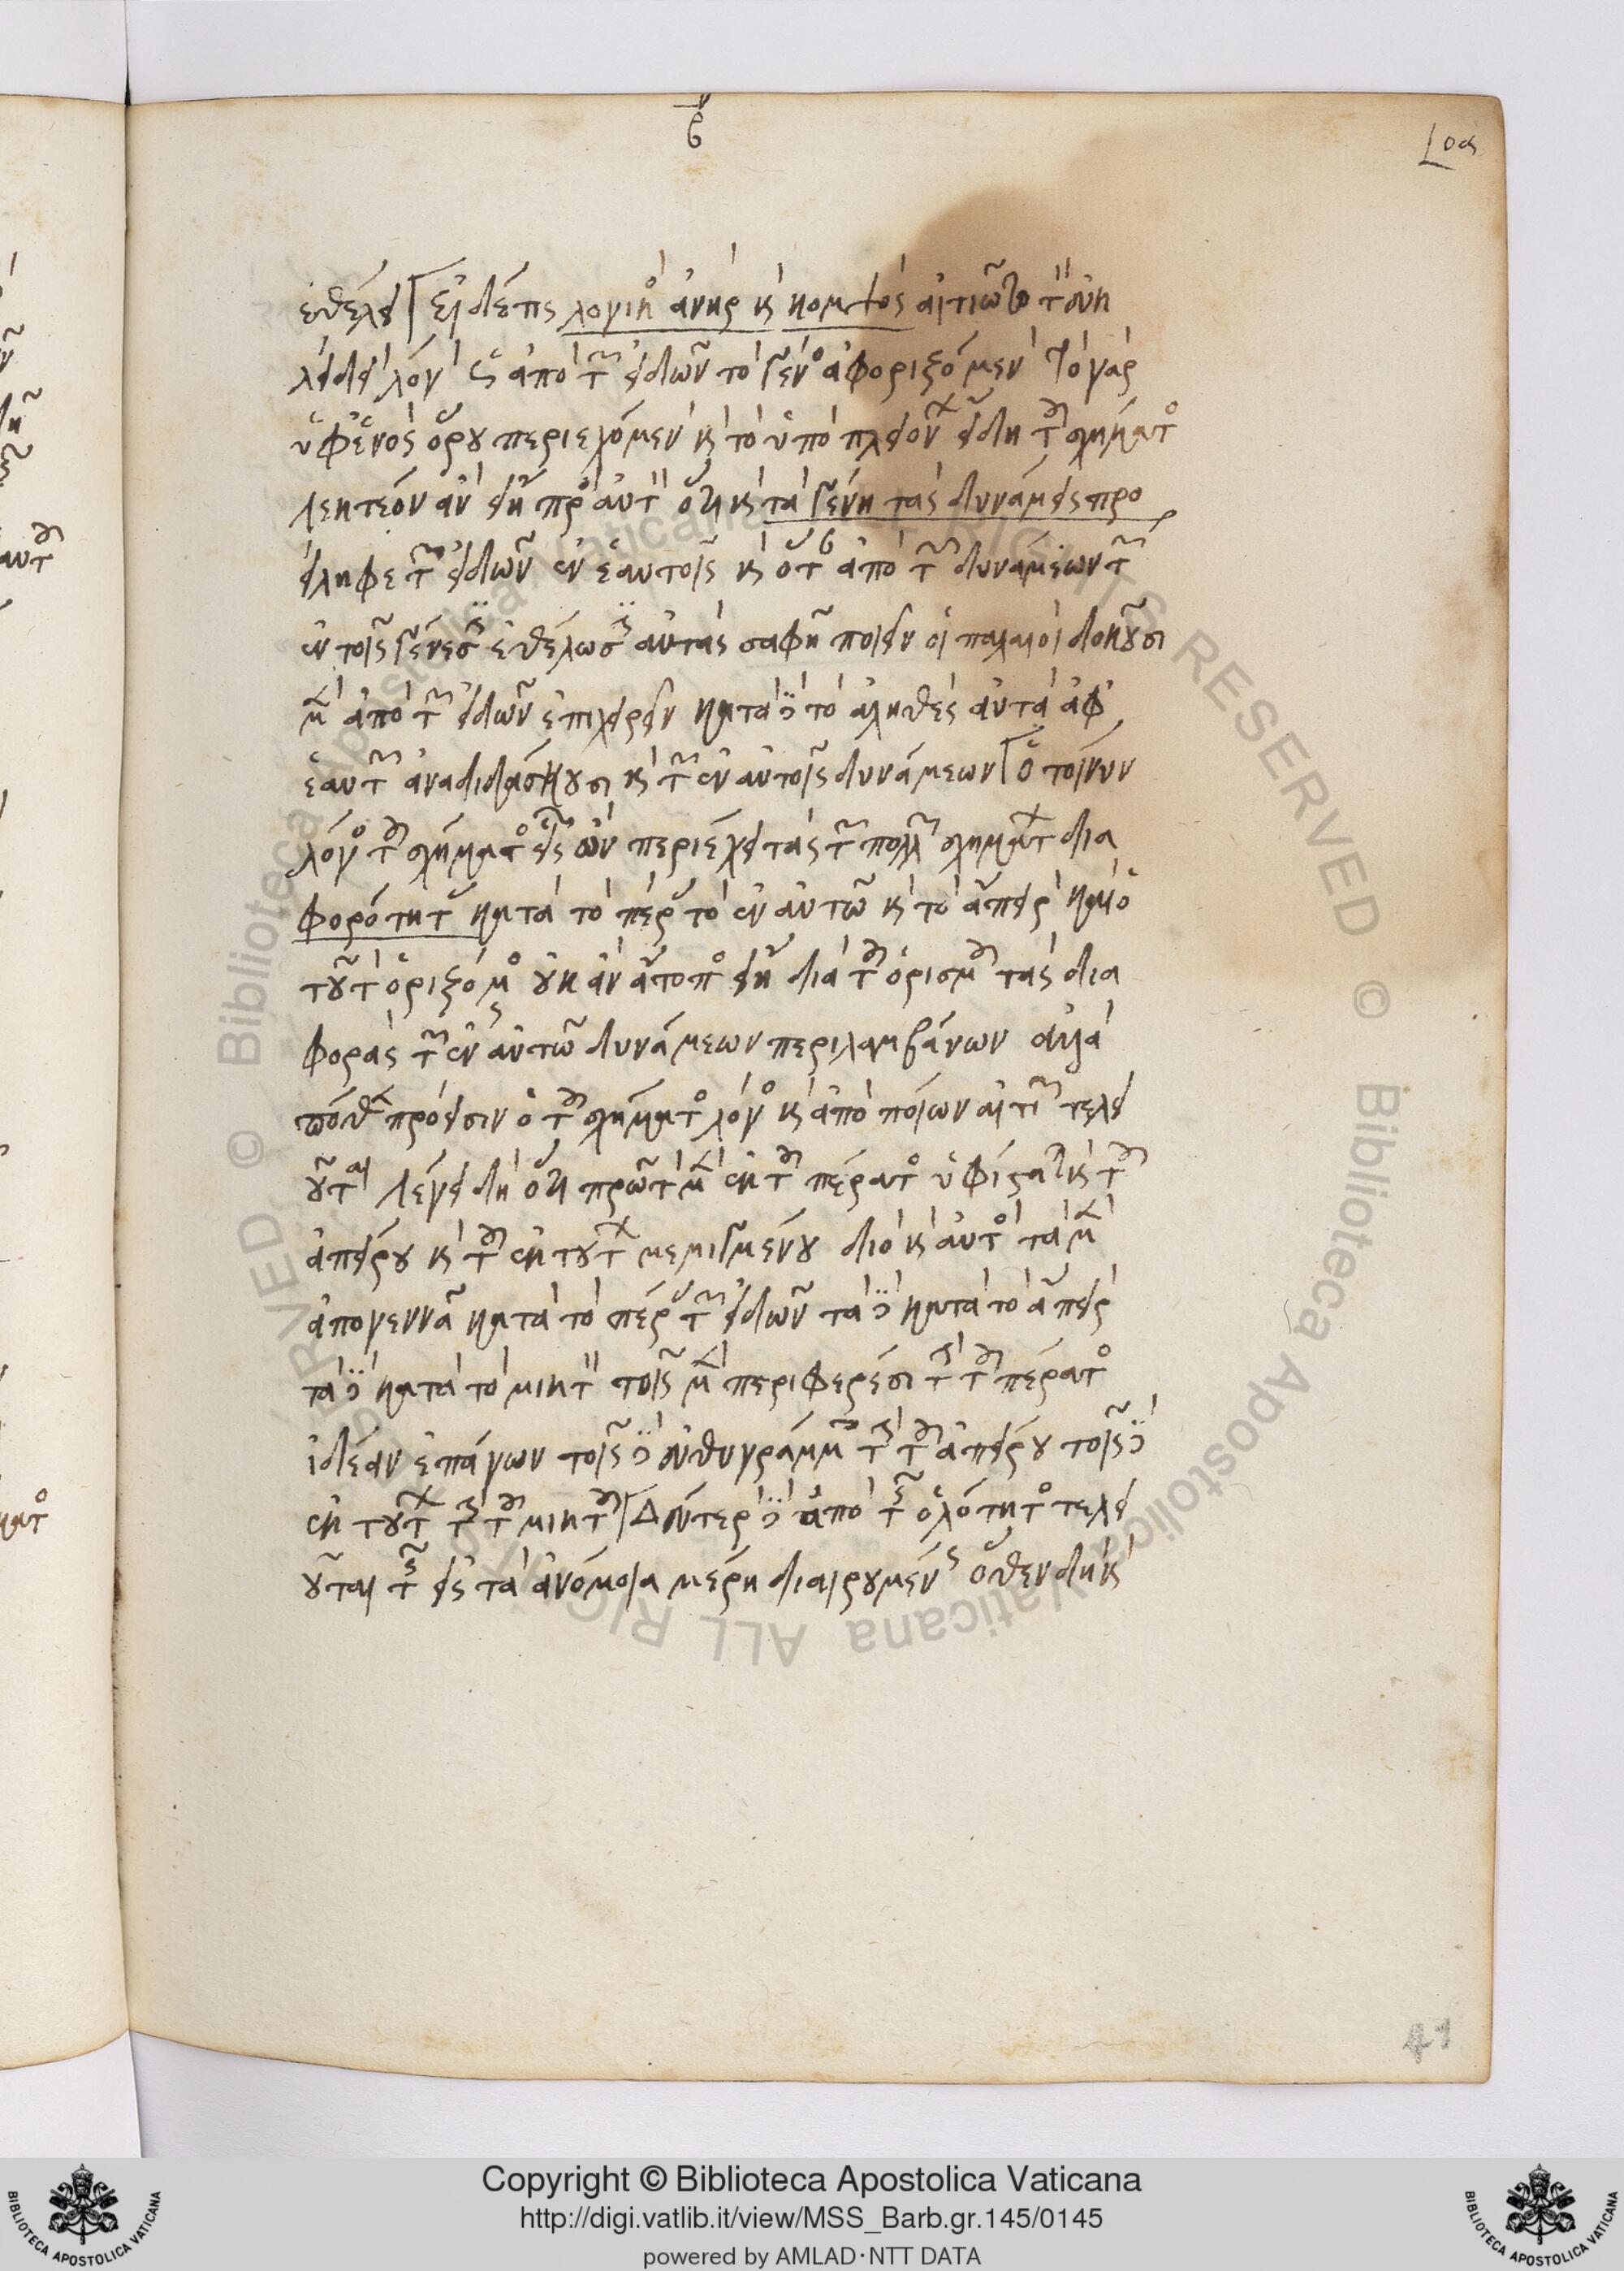 ἐθέλει εἰ δέ τις λογικὸς ἀνὴρ καὶ κομψὸς αἰτιῷτο τὸν εὐκ
λείδην λόγον ὡς ἀπὸ τῶν εἰδῶν τὸ γένος ἀφοριζόμενον τὸ γὰρ
ὑφ' ἑνὸς ὅρου περιεχόμενον καὶ τὸ ὑπὸ πλειόνων εἴδη τοῦ σχήματος
λεκτέον ἂν εἴη πρὸς αὐτὸν ὅτι καὶ τὰ γένη τὰς δυνάμεις προ
είληφε τῶν εἰδῶν ἐν ἑαυτοῖς καὶ ὅταν ἀπὸ τῶν δυνάμεων τῶν
ἐν τοῖς γένεσιν ἐθέλωσιν αὐτὰς σαφῆ ποιεῖν οἱ παλαιοὶ δοκοῦσι
μὲν ἀπὸ τῶν εἰδῶν ἐπιχειρεῖν κατὰ δὲ τὸ ἀληθὲς αὐτὰ ἀφ'
ἑαυτῶν ἀναδιδάσκουσι καὶ τῶν ἐν αὐτοῖς δυνάμεων ὁ τοίνυν
λόγος τοῦ σχήματος εἷς ὢν περιέχει τὰς τῶν πολλῶν σχημάτων δια
φορότητας κατὰ τὸ πέρας τὸ ἐν αὐτῷ καὶ τὸ ἄπειρον καὶ ὁ
τοῦτον ὁριζόμενος οὐκ ἂν ἄτοπος εἴη διὰ τοῦ ὁρισμοῦ τὰς δια
φορὰς τῶν ἐν αὐτῷ δυνάμεων περιλαμβάνων ἀλλὰ
πόθεν πρόεισιν ὁ τοῦ σχήματος λόγος καὶ ἀπὸ ποίων αἰτιῶν τελει
οῦται λέγε δὴ ὅτι πρῶτον μὲν ἐκ τοῦ πέρατος ὑφίσταται καὶ τοῦ
ἀπείρου καὶ τοῦ ἐκ τούτων μεμιγμένου διὸ καὶ αὐτὸς τὰ μὲν
ἀπογεννᾷ κατὰ τὸ πέρας τῶν εἰδῶν τὰ δὲ κατὰ τὸ ἄπειρον
τὰ δὲ κατὰ τὸ μικτὸν τοῖς μὲν περιφερέσι τὴν τοῦ πέρατος
ἰδέαν ἐπάγων τοῖς δὲ εὐθυγράμμοις τὴν τοῦ ἀπείρου τοῖς δὲ
ἐκ τούτων τὴν τοῦ μικτοῦ δεύτερον δὲ ἀπὸ τῆς ὁλότητος τελει
οῦται τῆς εἰς τὰ ἀνόμοια μέρη διαιρουμένης ὅθεν δὴ καὶ
41
Copyright © Biblioteca Apostolica Vaticana
http://digi.vatlib.it/view/MSS_Barb.gr.145/0145
powered by AMLAD·NTT DATA